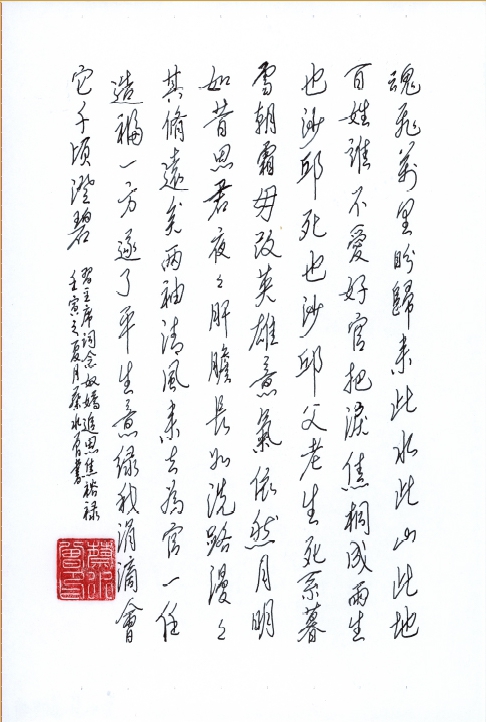 魂飛萬里盼歸來此水此山此地
百姓誰不愛好官把淚焦桐成雨生
也沙邱死也沙邱父老生死系暮
雪朝霜毋改英雄意氣依然月明
如昔思君夜々肝膽長如洗路漫々
其脩遠矣兩袖清風來去為官一任
造福一方遂了平生意绿我涓滴會
它千頃澄碧
習主席詞念奴嬌追思焦裕禄
壬寅之夏月蔡水書